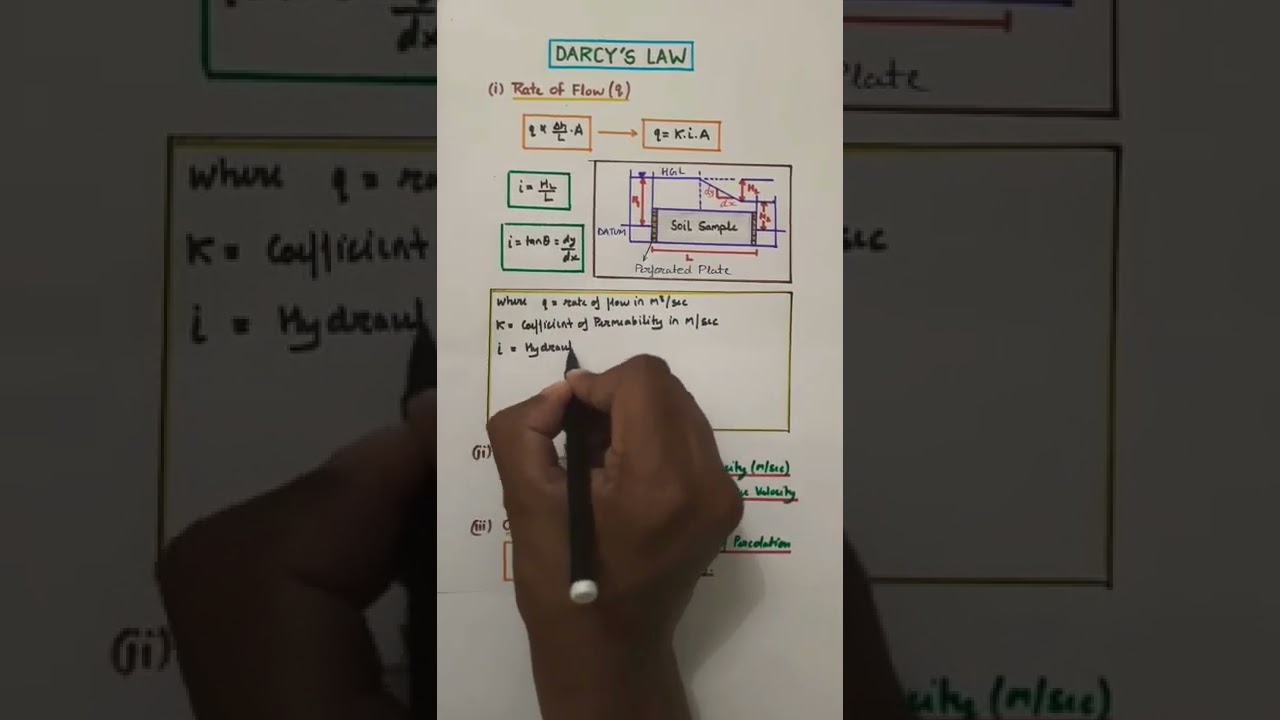 DARCY'S LAW
(i) Rate of Flow (q)
q ∝ Δh/L · A → q = K.i.A
i = HL/L
i = tanθ = dy/dx
HGL
H1
dy
dx
HL
H2
DATUM
Soil Sample
L
Perforated Plate
where q = rate of flow in m³/sec
K = Coefficient of Permeability in m/sec
i = Hydraul
(ii)
city (m/sec)
Velocity
(iii)
Percolation